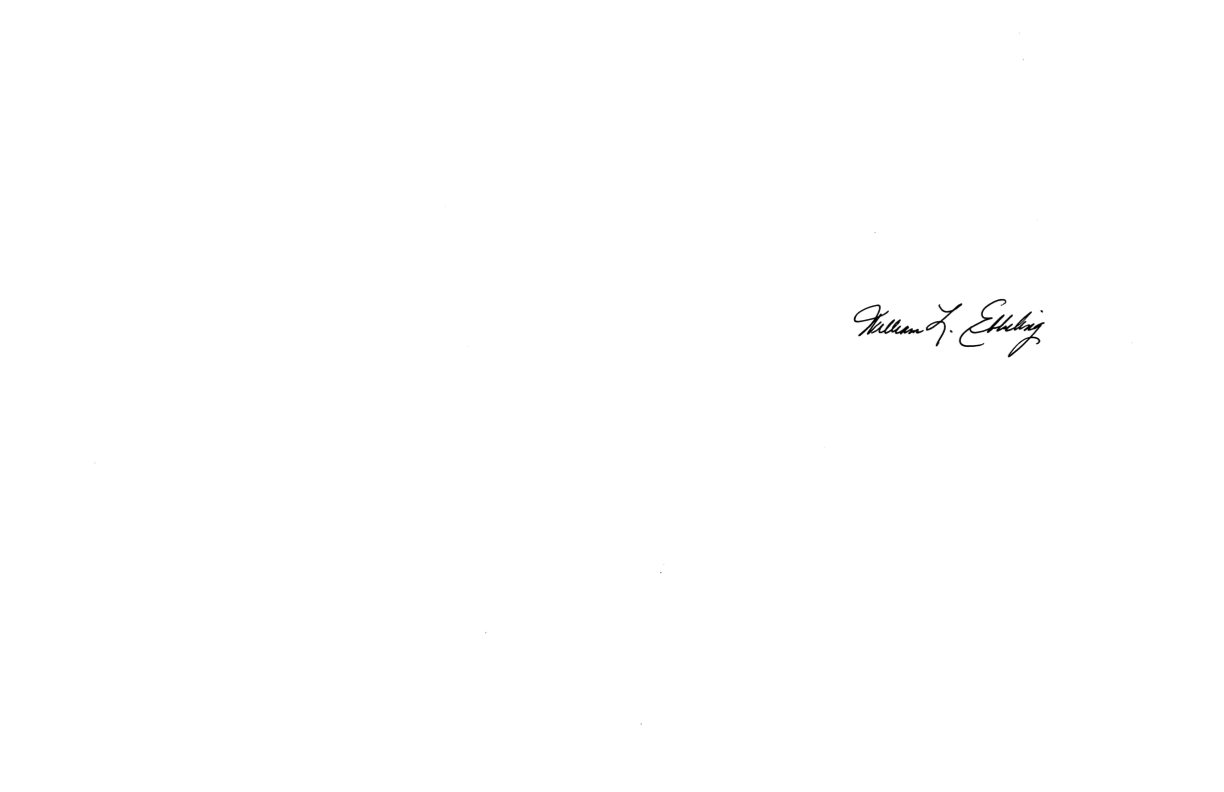 William L. Ebbeling